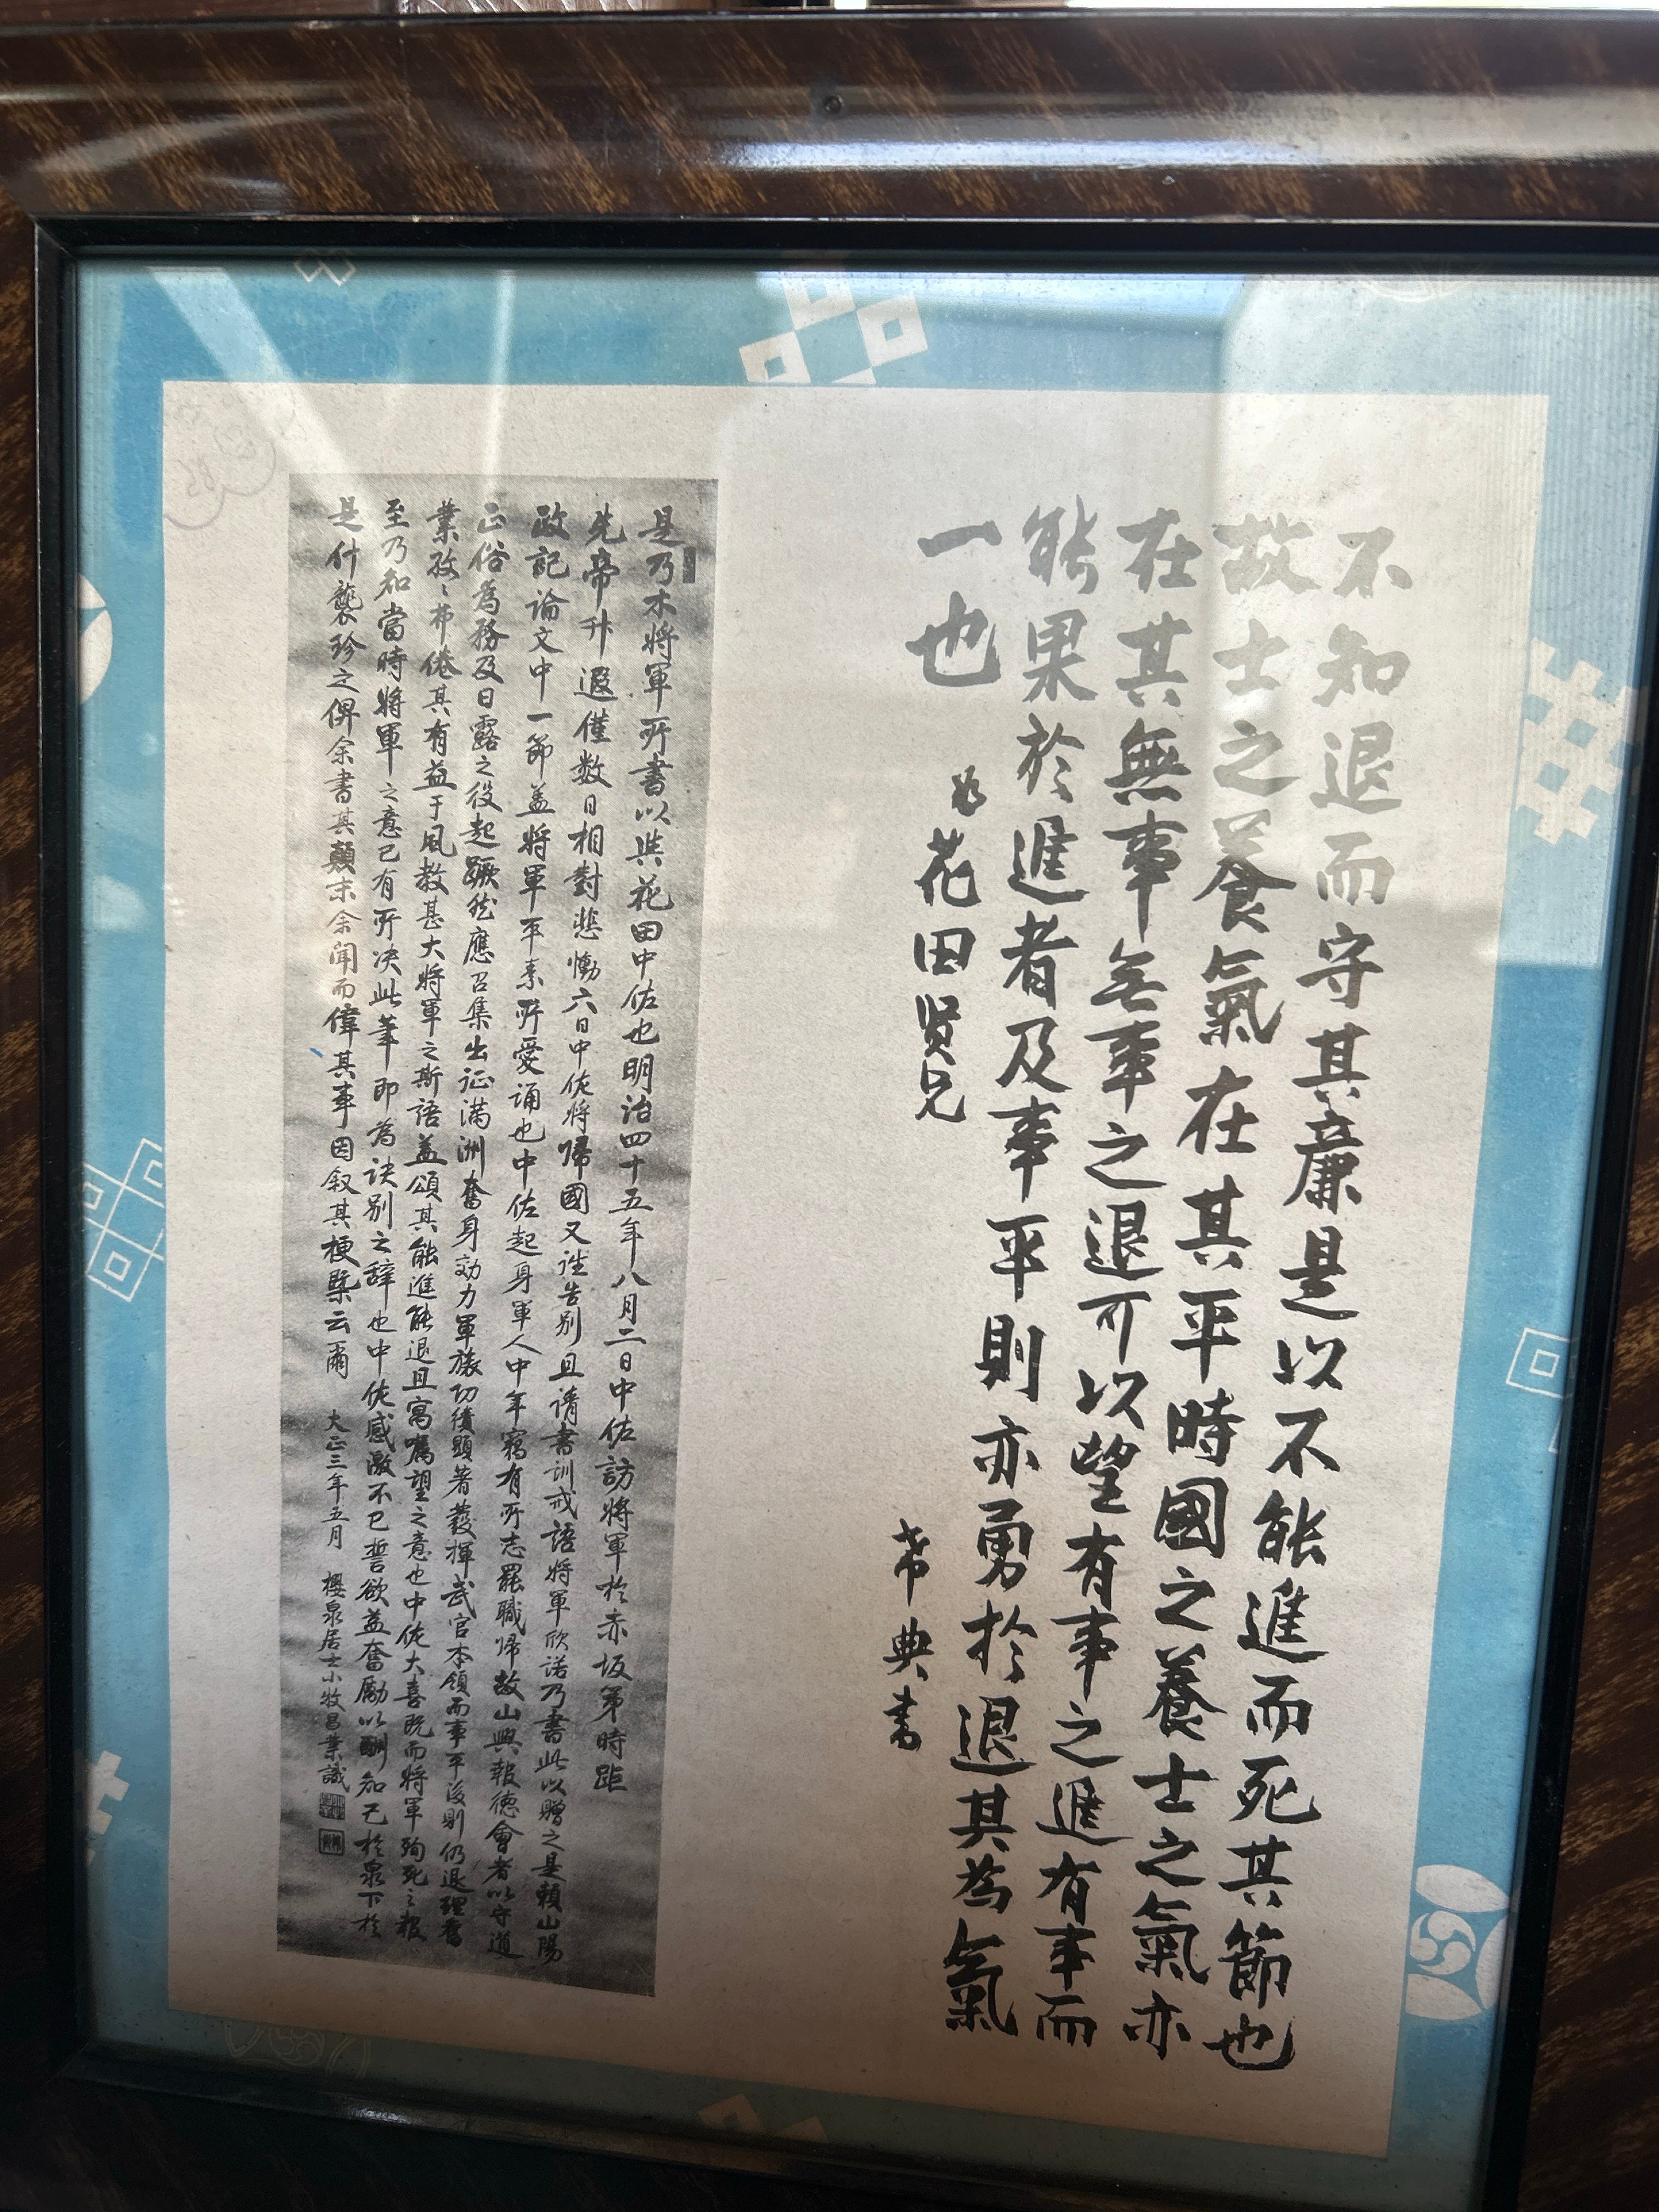 不知退而守其廉是以不能進而死其節也
故士之養氣在其平時國之養士之氣亦
在其無事無事之退可以望有事之進有事而
能果於進者及事平則亦勇於退其為氣
一也
為花田賢兄
希典書
是乃木将軍所書以與花田中佐也明治四十五年八月二日中佐訪将軍於赤坂第時距
先帝升遐僅数日相對悲慟六日中佐将帰國又詣告別且請書訓戒語将軍欣諾乃書此以贈之是頼山陽
政記論文中一節蓋将軍平素所愛誦也中佐起身軍人中年竊有所志罷職帰故山興報徳會者以守道
正俗為務及日露之役起蹶然應召集出征満洲奮身効力軍旅功績顕著發揮武官本領而事平後則仍退理舊
業孜々弗倦其有益于風教甚大将軍之斯語蓋頌其能進能退且寓嘱望之意也中佐大喜既而将軍殉死之報
至乃知當時将軍之意已有所决此筆即為訣别之辞也中佐感激不已誓欲益奮勵以酬知己於泉下於
是什襲珍之俾余書其顛末余聞而偉其事因叙其梗槩云爾 大正三年五月 櫻泉居士小牧昌業識